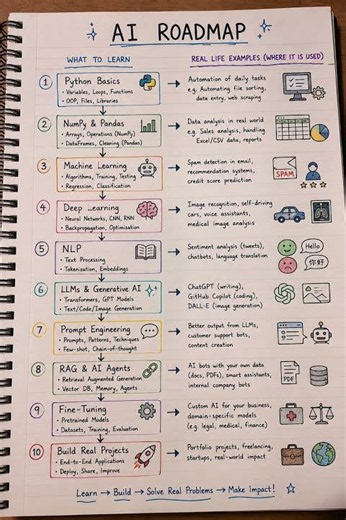 AI ROADMAP
WHAT TO LEARN
REAL LIFE EXAMPLES (WHERE IT IS USED)
1
Python Basics
• Variables, Loops, Functions
• OOP, Files, Libraries
Automation of daily tasks
e.g. Automating file sorting,
data entry, web scraping
2
NumPy & Pandas
• Arrays, Operations (NumPy)
• DataFrames, Cleaning (Pandas)
Data analysis in real world
e.g. Sales analysis, handling
Excel/CSV data, reports
3
Machine Learning
• Algorithms, Training, Testing
• Regression, Classification
Spam detection in email,
recommendation systems,
credit score prediction
SPAM
4
Deep Learning
• Neural Networks, CNN, RNN
• Backpropagation, Optimization
Image recognition, self-driving
cars, voice assistants,
medical image analysis
5
NLP
• Text Processing
• Tokenization, Embeddings
Sentiment analysis (tweets),
chatbots, language translation
Hello
你好
6
LLMs & Generative AI
• Transformers, GPT Models
• Text/Code/Image Generation
ChatGPT (writing),
GitHub Copilot (coding),
DALL-E (image generation)
7
Prompt Engineering
• Prompts, Patterns, Techniques
• Few-shot, Chain-of-thought
Better output from LLMs,
customer support bots,
content creation
8
RAG & AI Agents
• Retrieval Augmented Generation
• Vector DB, Memory, Agents
AI bots with your own data
(docs, PDFs), smart assistants,
internal company bots
PDF
9
Fine-Tuning
• Pretrained Models
• Datasets, Training, Evaluation
Custom AI for your business,
domain-specific models
(e.g. legal, medical, finance)
10
Build Real Projects
• End-to-End Applications
• Deploy, Share, Improve
Portfolio projects, freelancing,
startups, real-world impact
Learn → Build → Solve Real Problems → Make Impact!